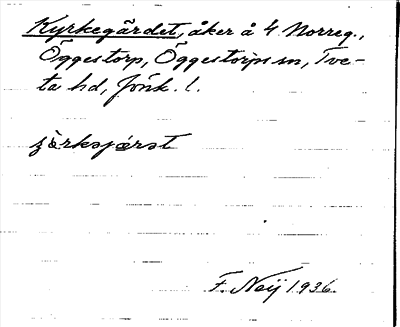 Kyrkegärdet, åker å 4 Norreg.,
Öggestorp, Öggestorps sn, Tve-
ta hd, Jönk. l.
F. Neij 1936.